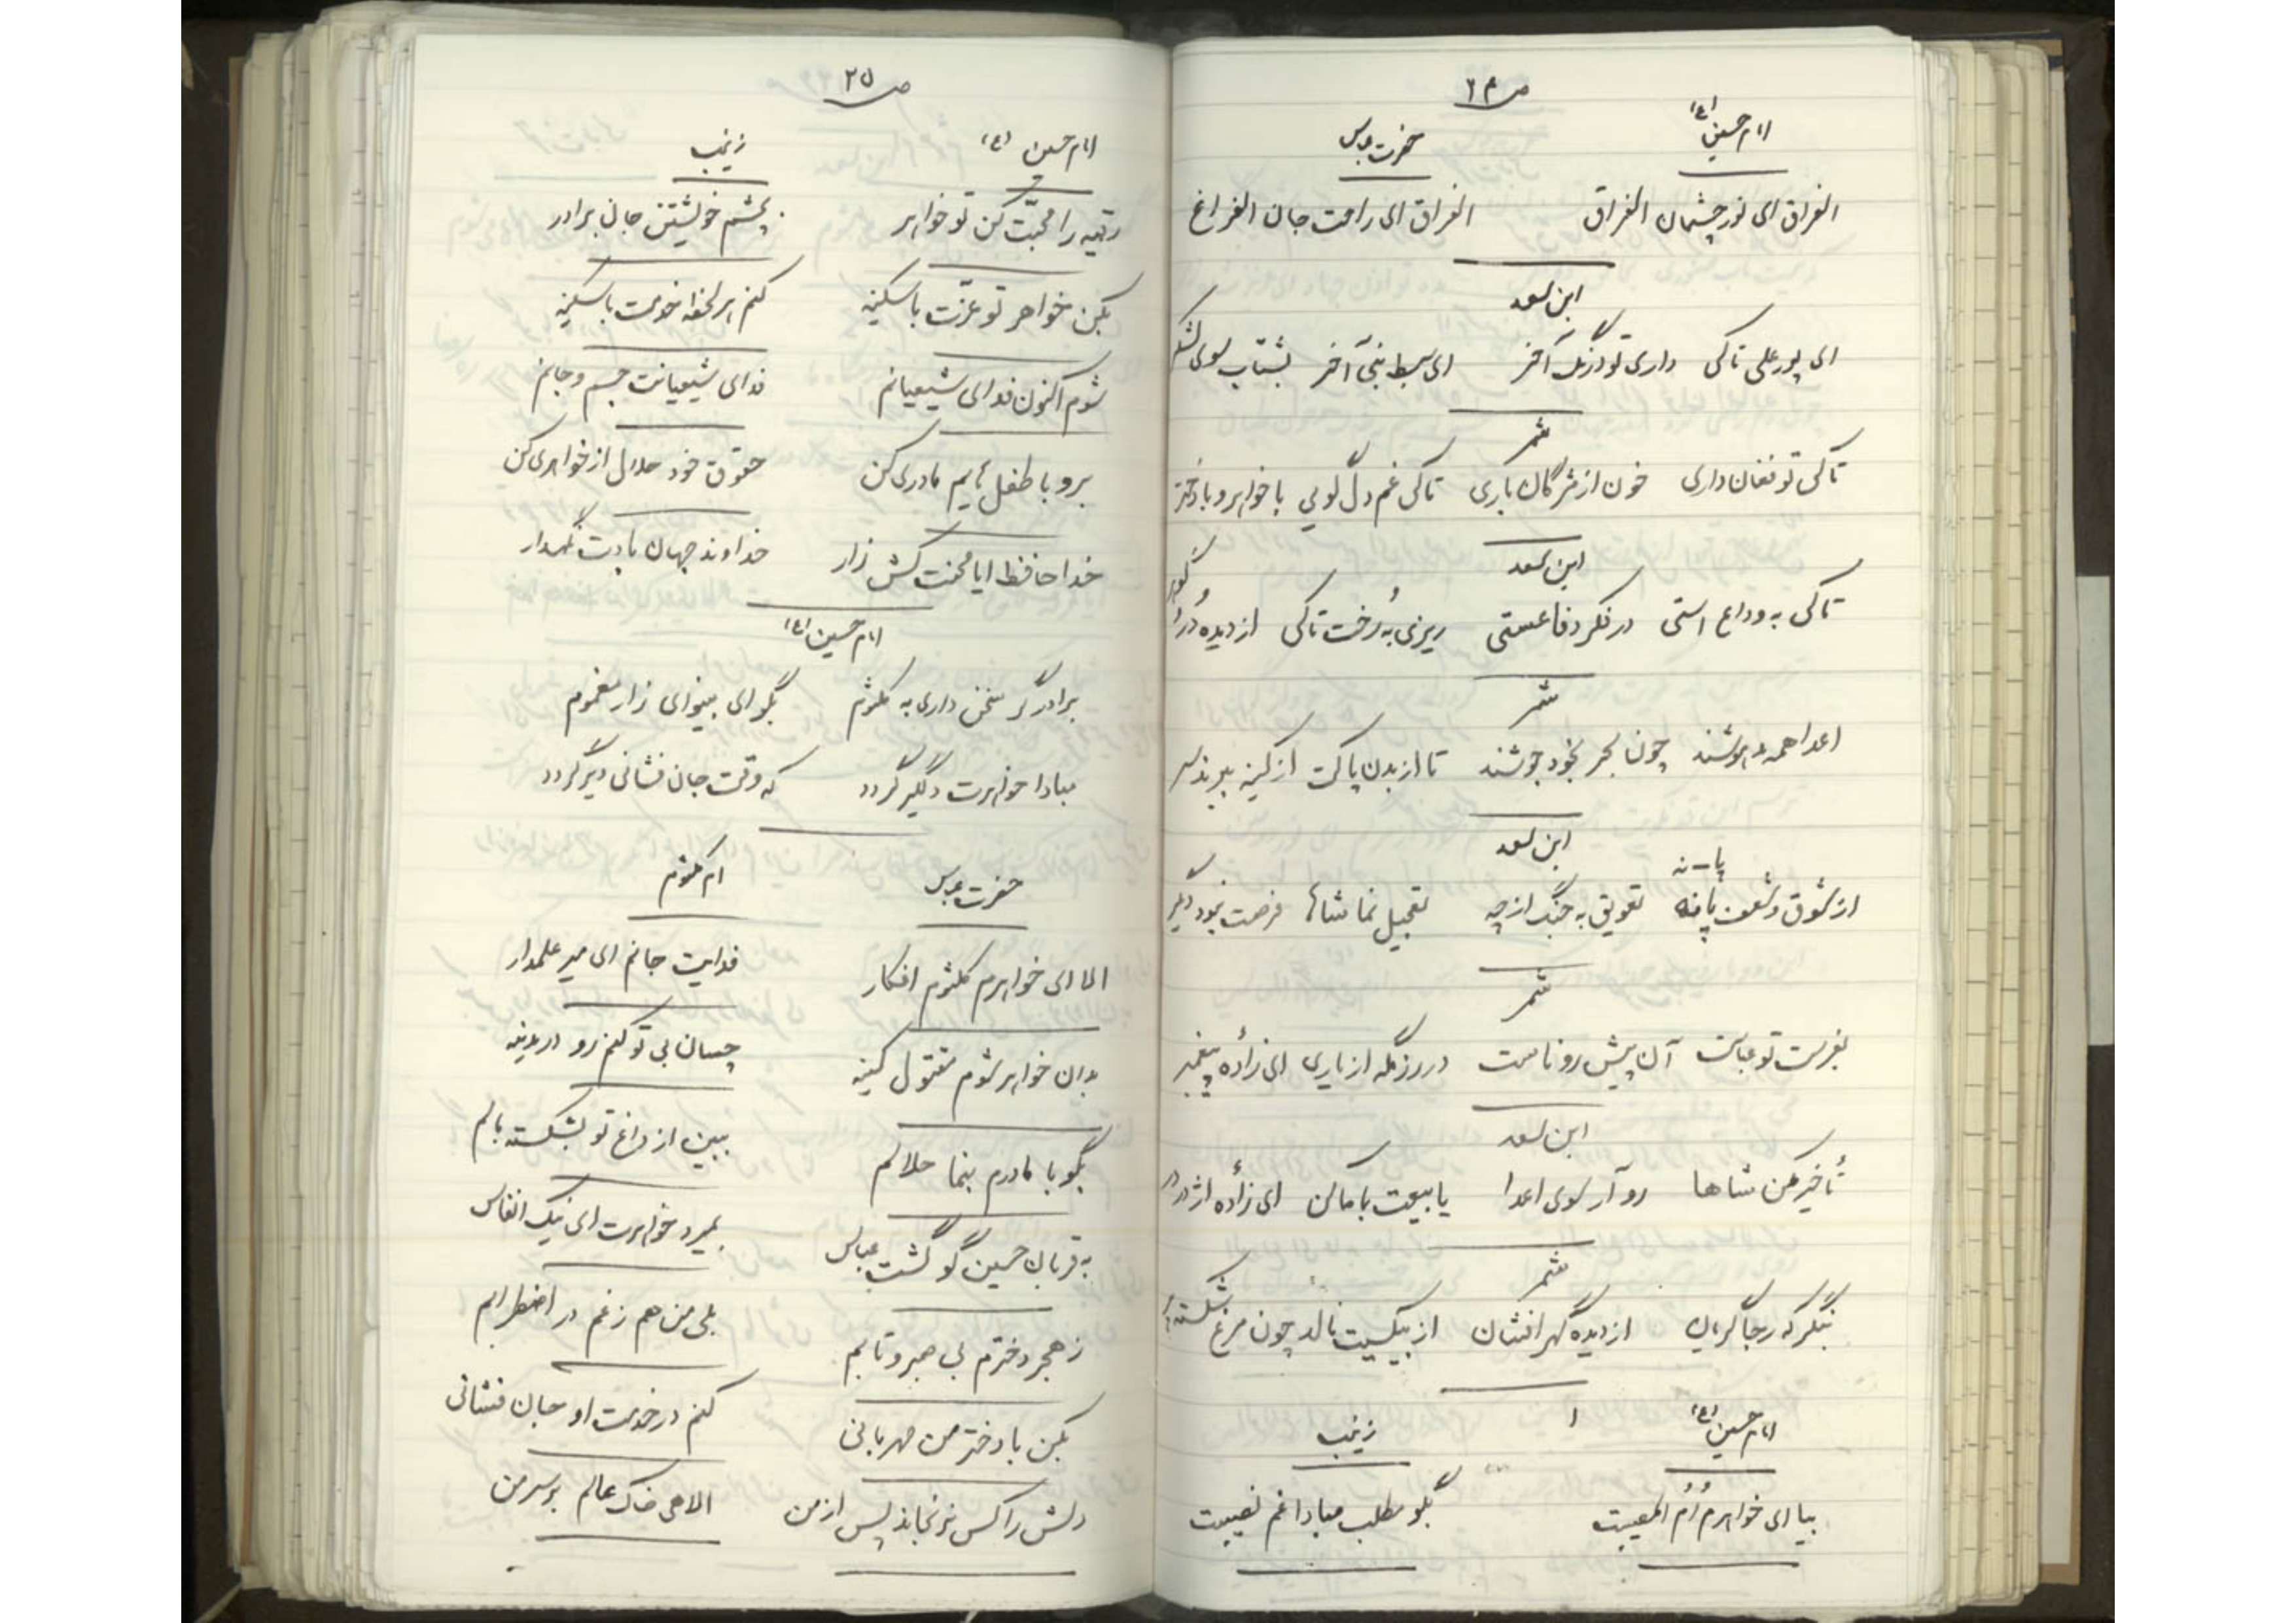 ص ۲۴
امام حسین (ع) حضرت عباس
الفراق ای نور چشمان الفراق الفراق ای راحت جان الفراغ
ابن سعد
ای پور علی تاکی داری تو درنگ آخر ای سبط نبی آخر بشتاب سوی لشگر
شمر
تاکی تو فغان داری خون از مژگان باری تاکی غم دل گویی با خواهر و با دختر
ابن سعد
تاکی به وداع استی در فکر دفاعستی ریزی به رخت تاکی از دیده دُر و گوهر
شمر
اعدا همه میپوشند چون بحر بخود جوشند تا از بدن پاکت از کینه ببرند سر
ابن سعد
پا - نه
از شوق و شعف پا نه تعویق به جنگ از چه تعجیل نما شاها فرصت نبود دیگر
شمر
بفرست تو عباست آن پیش رو ناست در رزمگه از یاری ای زاده پیغمبر
ابن سعد
تأخیر مکن شاها رو آر سوی اعدا یا بیعت با ما کن ای زاده اژدر در
شمر
بنگر که رجا گریان از دیده گهر افشان از بیکسیت نالد چون مرغ شکسته پر
امام حسین (ع) زینب
بیا ای خواهرم اُم المصیبت بگو مطلب مبادا غم نصیبت
ص ۲۵
امام حسین (ع) زینب
رقیه را محبّت کن تو خواهر بچشم خویشتن جان برادر
بکن خواهر تو عزّت با سکینه کنم هر لحظه خدمت با سکینه
شوم اکنون فدای شیعیانم فدای شیعیانت جسم و جانم
برو با طفل هایم مادری کن حقوق خود حلال از خواهری کن
خدا حافظ ایا محنت کش زار خداوند جهان بادت نگهدار
امام حسین (ع)
برادر گر سخن داری به کلثوم بگو ای بینوای زار مغموم
مبادا خواهرت دلگیر گردد که وقت جان فشانی دیر گردد
حضرت عباس ام کلثوم
الا ای خواهرم کلثوم افکار فدایت جانم ای میر علمدار
بدان خواهر شوم مقتول کینه چسان بی تو کنم رو در مدینه
بگو با مادرم بنما حلالم ببین از داغ تو بشکسته بالم
به قربان حسین گو گشت عباس بمیرد خواهرت ای نیک انفاس
ز هجر دخترم بی صبر و تابم بلی من هم ز غم در اضطرابم
بکن با دختر من مهربانی کنم در خدمت او جان فشانی
دلش را کس نرنجاند پس از من الاهی خاک عالم بر سر من